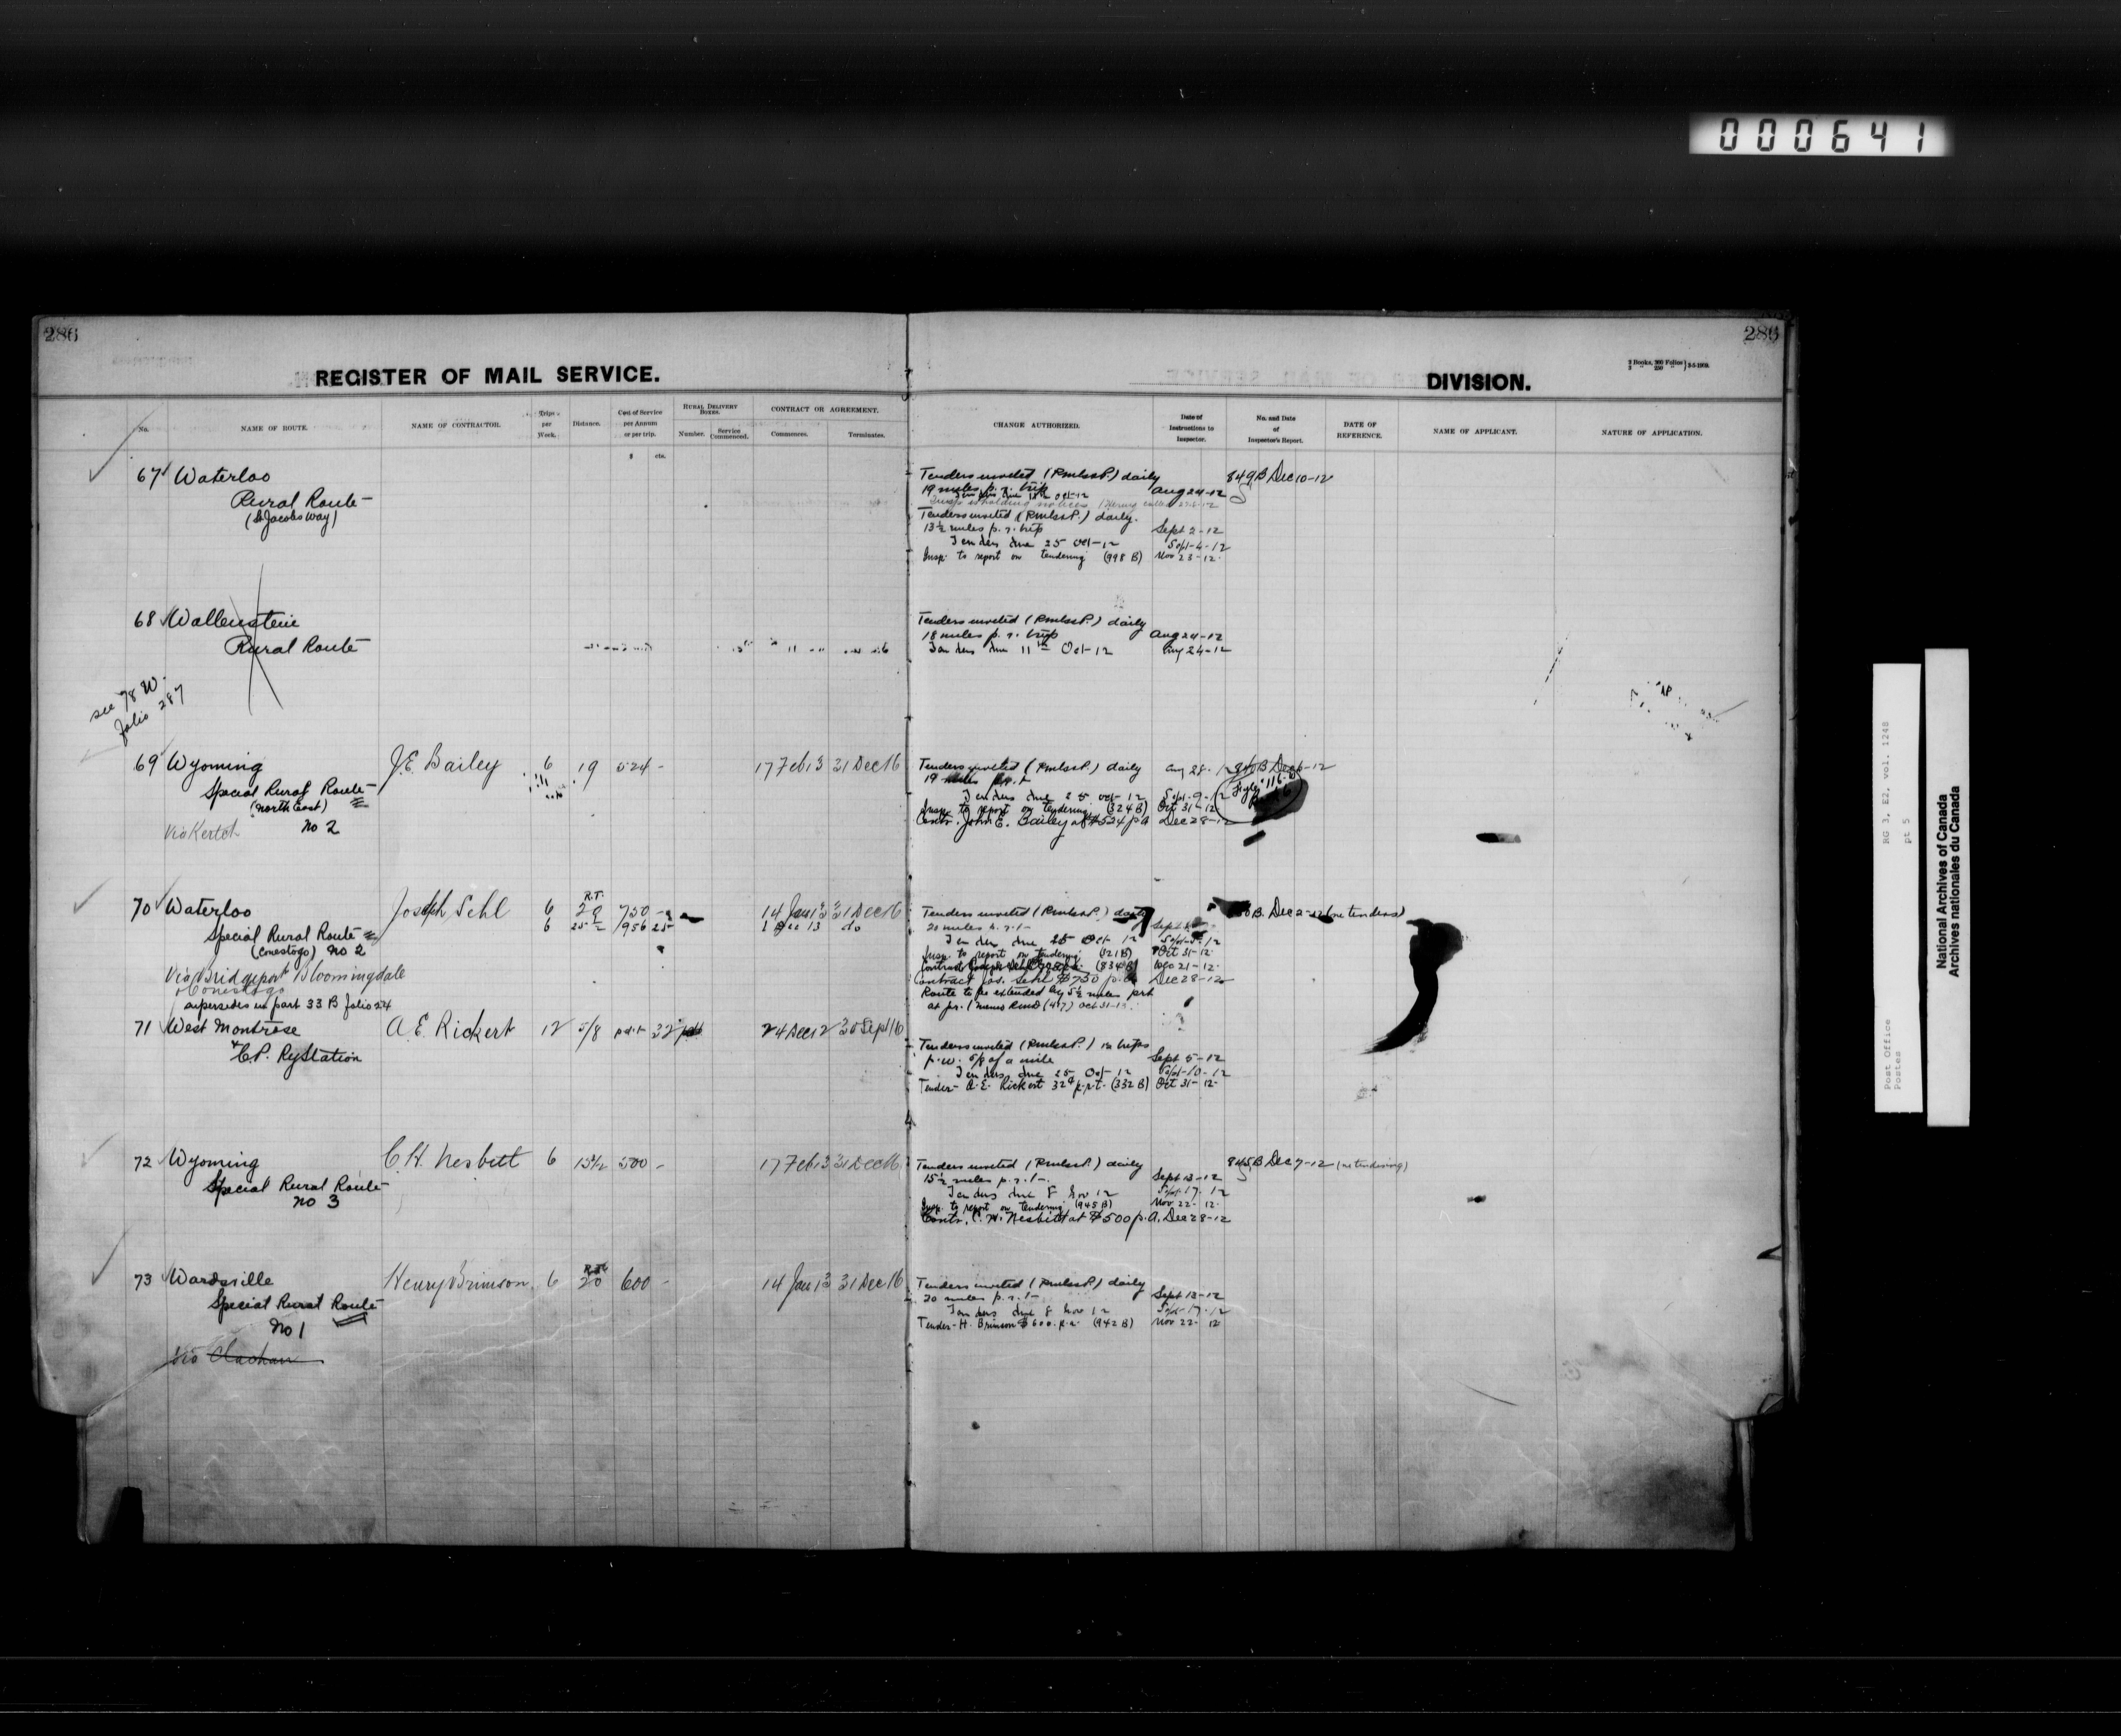 000641
286
286
REGISTER OF MAIL SERVICE.
DIVISION.
No.
NAME OF ROUTE.
NAME OF CONTRACTOR.
Trips per Week.
Distance.
Cost of Service per Annum or per trip.
$ cts.
RURAL DELIVERY BOXES.
Number.
Service Commenced.
CONTRACT OR AGREEMENT.
Commences.
Terminates.
CHANGE AUTHORIZED.
Date of Instructions to Inspector.
No. and Date of Inspector's Report.
DATE OF REFERENCE.
NAME OF APPLICANT.
NATURE OF APPLICATION.
67 Waterloo
Rural Route
(St Jacobs way)
Tenders invited (Rmlss P.) daily
19 miles p. r. trip Aug 24-12
849 B Dec 10-12
Tenders invited (Rmlss P.) daily.
13½ miles p. r. trip Sept 2-12
Tenders due 25 Oct-12 Sept-4-12
Insp. to report on tendering (998 B) Nov 23-12
68 Wallenstein
Rural Route
Tenders invited (Rmlss P.) daily
18 miles p. r. trip Aug 24-12
Tenders due 11th Oct-12 Aug 24-12
see 78 W.
folio 287
69 Wyoming J.E. Bailey 6 19 524- 17 Feb 13 31 Dec 16
Special Rural Route
(North East)
No 2
Via Kertch
Tenders invited (Rmlss P.) daily Aug 28-12
19
Tenders due 25 Oct-12 Sept-9-12
Insp. to report on tendering (324 B) Oct 31-12
Contr. John E. Bailey at $524 p a Dec 28-12
70 Waterloo Joseph Sehl 6 R.T. 20 750- 14 Jan 13 31 Dec 16
6 25½ 956 25 1 Dec 13 do
Special Rural Route
(Conestogo) No 2
Via Bridgeport Bloomingdale
& Conestogo
supersedes in part 33 B folio 24
Tenders invited (Rmlss P.) daily
20 miles p. r. t-
Tenders due 25 Oct-12
Insp. to report on tendering (321 B) Oct 31-12
(834 B) Dec 21-12
Contract Jos. Sehl $750 p.a Dec 28-12
Route to be extended by 5½ miles prt
B. Dec 2-12 (re tenders)
71 West Montrose A.E. Rickert 12 5/8 p.r.t 32 24 Dec 12 30 Sept 16
& C.P. Ry Station
Tenders invited (Rmlss P.) 12 trips
p.w. 5/8 of a mile Sept 5-12
Tenders due 25 Oct-12 Sept-10-12
Tender- A.E. Rickert 32¢ p.r.t. (332 B) Oct 31-12
72 Wyoming C.H. Nesbitt 6 15½ 500- 17 Feb 13 31 Dec 16
Special Rural Route
No 3
Tenders invited (Rmlss P.) daily
15½ miles p. r. t-. Sept 13-12
Tenders due 8 Nov 12 Sept 17-12
Insp. to report on tendering (945 B) Nov 22-12
Contr. C. H. Nesbitt at $500 p.a. Dec 28-12
845 B Dec 7-12 (re tendering)
73 Wardsville Henry Brimson 6 20 600- 14 Jan 13 31 Dec 16
Special Rural Route
No 1
Via Clachan
Tenders invited (Rmlss P.) daily
20 miles p. r. t- Sept 13-12
Tenders due 8 Nov 12 Sept-17-12
Tender- H. Brimson $600. p.a. (942 B) Nov 22-12
Post Office
Postes
RG 3, E2, vol. 1248
pt 5
National Archives of Canada
Archives nationales du Canada